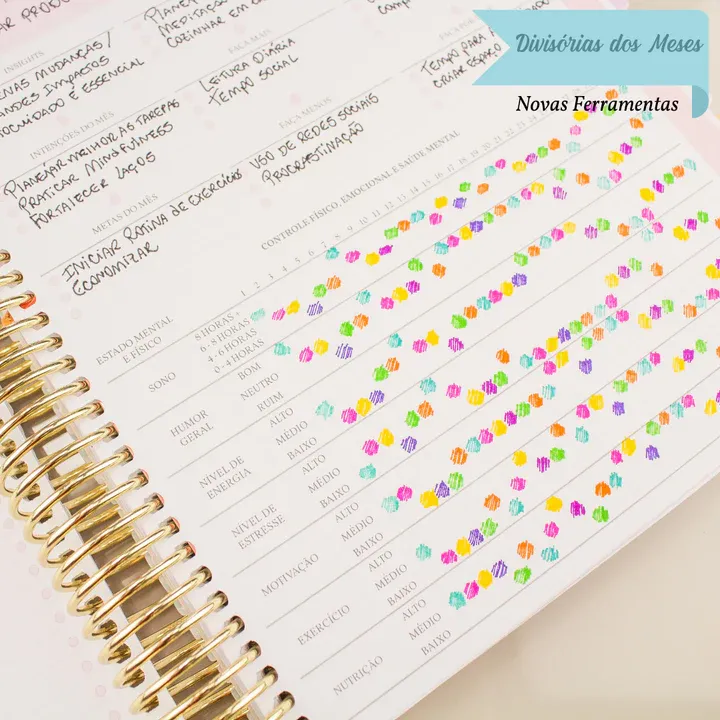 Divisórias dos Meses
Novas Ferramentas
MEDITAÇÃO
COZINHAR EM C
INSIGHTS
ENAS MUDANÇAS /
ANDES IMPACTOS
TOCUIDADO É ESSENCIAL
FAÇA MAIS
LEITURA DIÁRIA
TEMPO SOCIAL
TEMPO PARA
CRIAR ESPAÇO
INTENÇÕES DO MÊS
PLANEJAR MELHOR AS TAREFAS
PRATICAR MINDFULNESS
FORTALECER LAÇOS
FAÇA MENOS
USO DE REDES SOCIAIS
PROCRASTINAÇÃO
METAS DO MÊS
INICIAR ROTINA DE EXERCÍCIOS
ECONOMIZAR
CONTROLE FÍSICO, EMOCIONAL E SAÚDE MENTAL
1 2 3 4 5 6 7 8 9 10 11 12 13 14 15 16 17 18 19 20 21
ESTADO MENTAL
E FÍSICO
SONO
8 HORAS +
6 - 8 HORAS
4 - 6 HORAS
0 - 4 HORAS
HUMOR
GERAL
BOM
NEUTRO
RUIM
NÍVEL DE
ENERGIA
ALTO
MÉDIO
BAIXO
NÍVEL DE
ESTRESSE
ALTO
MÉDIO
BAIXO
MOTIVAÇÃO
ALTO
MÉDIO
BAIXO
EXERCÍCIO
ALTO
MÉDIO
BAIXO
NUTRIÇÃO
ALTO
MÉDIO
BAIXO